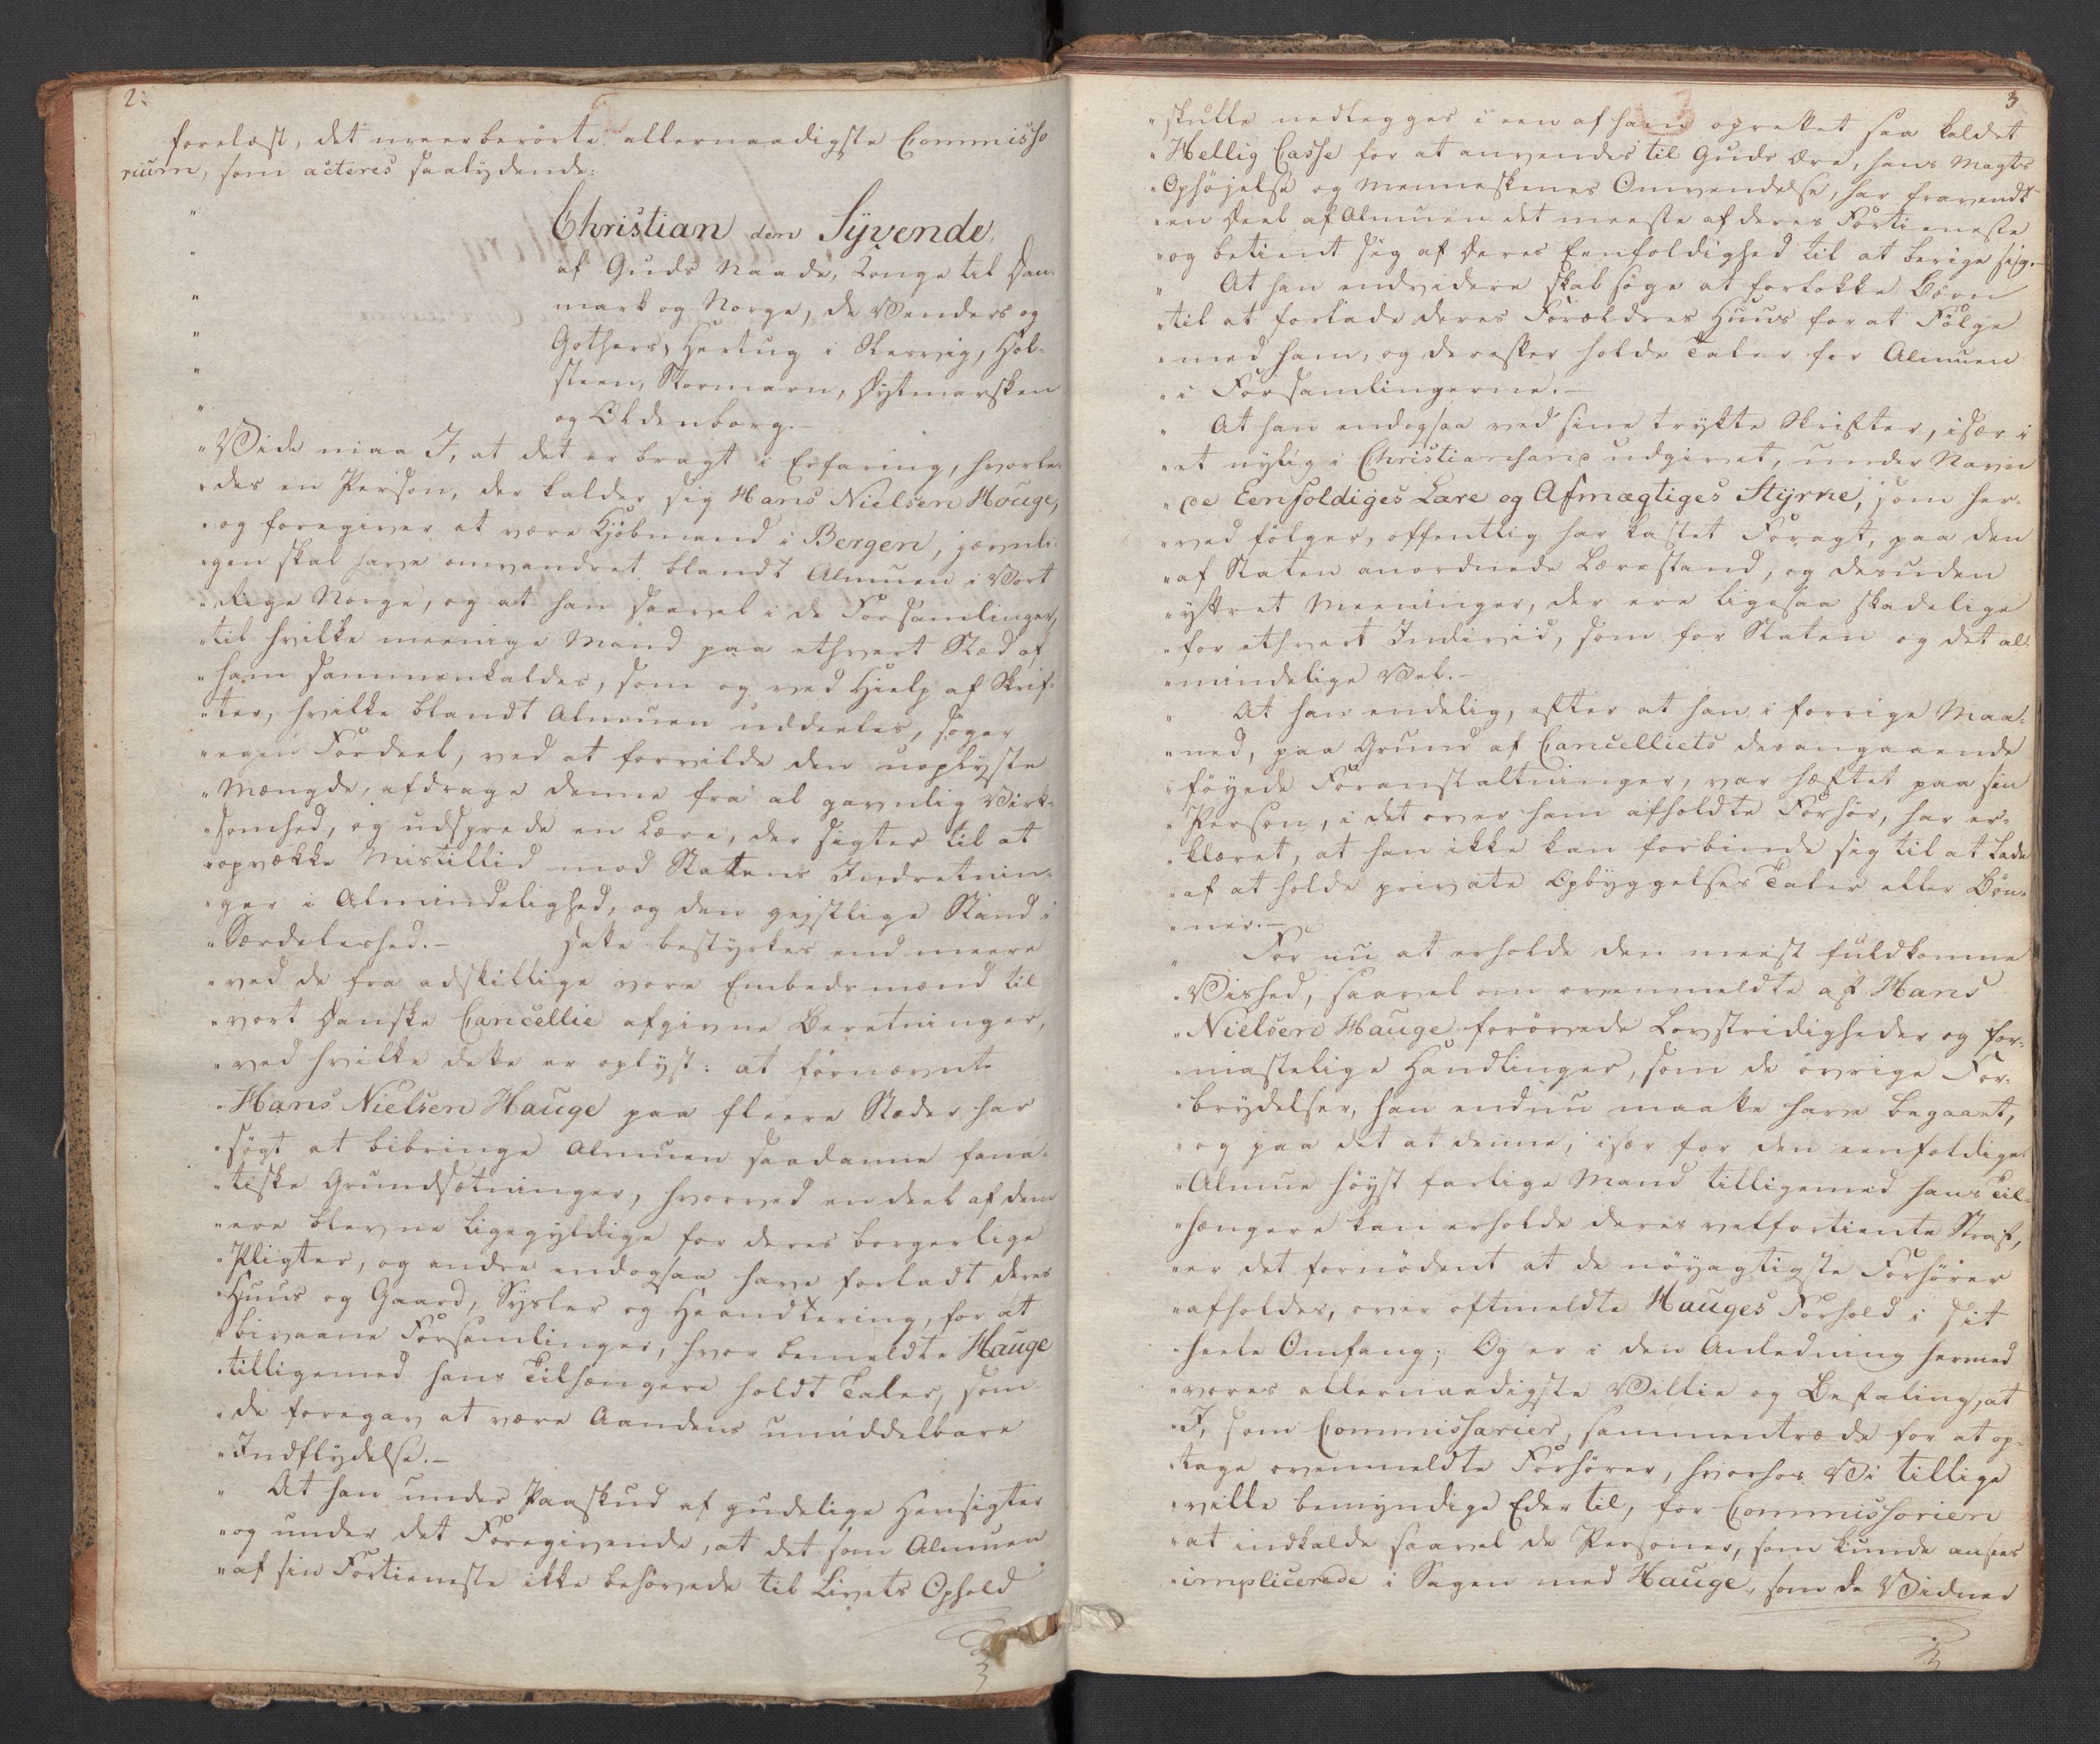 2.
forelæst, det meerberørte allernaadigste Commisso
rium, som acteres saalydende:
" Christian den Syvende,
" af Guds Naade, Konge til Dan-
" mark og Norge, de Venders og
" Gothers, Hertug i Slesvig, Hol-
" steen, Stormarn, Dytmarsken
" og Oldenborg.-
" Vide maa I, at det er bragt i Erfaring, hvorle-
" des en Person, der kalder sig Hans Nielsen Houge,
" og foregiver at være Kjøbmand i Bergen, jævnli-
" gen skal have omvandret blandt Almuen i Vort
" Rige Norge, og at han saavel i de Forsamlinger,
" til hvilke meenige Mand paa ethvert Stæd af
" ham sammenkaldes, som og ved Hielp af Skrif-
" ter, hvilke blandt Almuen uddeeles, søger
" egen Fordeel, ved at forvilde den uoplyste
" Mængde, afdrage denne fra al gavnlig Virk-
" somhed, og udsprede en Lære, der sigter til at
" opvække Mistillid mod Statens Indretnin-
" ger i Almindelighed, og den gejstlige Stand i
" Særdeleshed.- Dette bestyrkes end meere
" ved de fra adskillige vore Embedsmænd til
" vort Danske Cancellie afgivne Beretninger,
" ved hvilke dette er oplyst: at førnævnte
" Hans Nielsen Hauge paa fleere Stæder har
" søgt at bibringe Almuen saadanne fana-
" tiske Grundsætninger, hvorved en deel af dem
" ere blevne ligegyldige for deres borgerlige
" Pligter, og andre endogsaa have forladt deres
" Huus og Gaard, Sysler og Haandtering, for at
" bivaane Forsamlinger, hvor bemeldte Hauge
" tilligemed hans Tilhængere holdt Taler, som
" de foregav at være Aandens umiddelbare
" Indflydelse.-
" At han under Paaskud af gudelige Hensigter
" og under det Foregivende, at det som Almuen
" af sin Fortieneste ikke behøvede til Livets Ophold
3
" skulle nedlegges i een af ham oprettet saa kaldet
" Hellig Casse for at anvendes til Guds Ære, hans Magts
" Ophøjelse og Menneskenes Omvendelse, har fravendt
" en Deel af Almuen det meeste af deres Fortieneste
" og betient sig af Deres Eenfoldighed til at berige sig.-
" At han endvidere skal søge at forlokke Børn
" til at forlade deres Forældres Huus for at Følge
" med ham, og derefter holde Taler for Almuen
" i Forsamlingerne.-
" At han endogsaa ved sine trykte Skrifter, især i
" et nylig i Christiansand udgivet, under Navn
" De Eenfoldiges Lære og Afmægtiges Styrke, som her-
" ved følger, offentlig har kastet Foragt, paa den
" af Staten anordnede Lærestand, og desuden
" yttret Meeninger, der ere ligesaa skadelige
" for ethvert Individ, som for Staten og det al-
" mindelige Vel.-
" At han endelig, efter at han i forrige Maa-
" ned, paa Grund af Cancelliets desangaaende
" føyede Foranstaltninger, var hæftet paa sin
" Person, i det over ham afholdte Forhør, har er-
" klæret, at han ikke kan forbinde sig til at lade
" af at holde private Opbyggelses Taler eller Bøn-
" ner.-
" For nu at erholde den meest fuldkomne
" Vished, saavel om ovenmeldte af Hans
" Nielsen Hauge forøvede Lovstridigheder og for-
" mastelige Handlinger, som de øvrige For-
" brydelser, han endnu maatte have begaaet,
" og paa det at denne, især for den eenfoldige
" Almue høyst farlige Mand tilligemed hans Til-
" hængere kan erholde deres velfortiente Straf,
" er det fornødent at de nøyagtigste Forhører
" afholdes, over oftmeldte Hauges Forhold i sit
" heele Omfang; Og er i den Anledning hermed
" vores allernaadigste Villie og Befaling, at
" I, som Commissarier, sammentræde for at op-
" tage ovenmeldte Forhører, hvorhos Vi tillige
" ville bemyndige Eder til, for Commissionen
" at indkalde saavel de Personer, som kunde ansees
" implicerede i Sagen med Hauge, som de Vidner